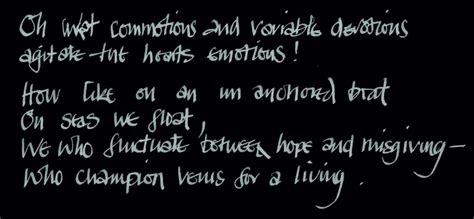 Oh what commotions and variable devotions
agitate the hearts emotions!
How like on an un anchored boat
On seas we float,
We who fluctuate between hope and misgiving—
Who champion Venus for a living.